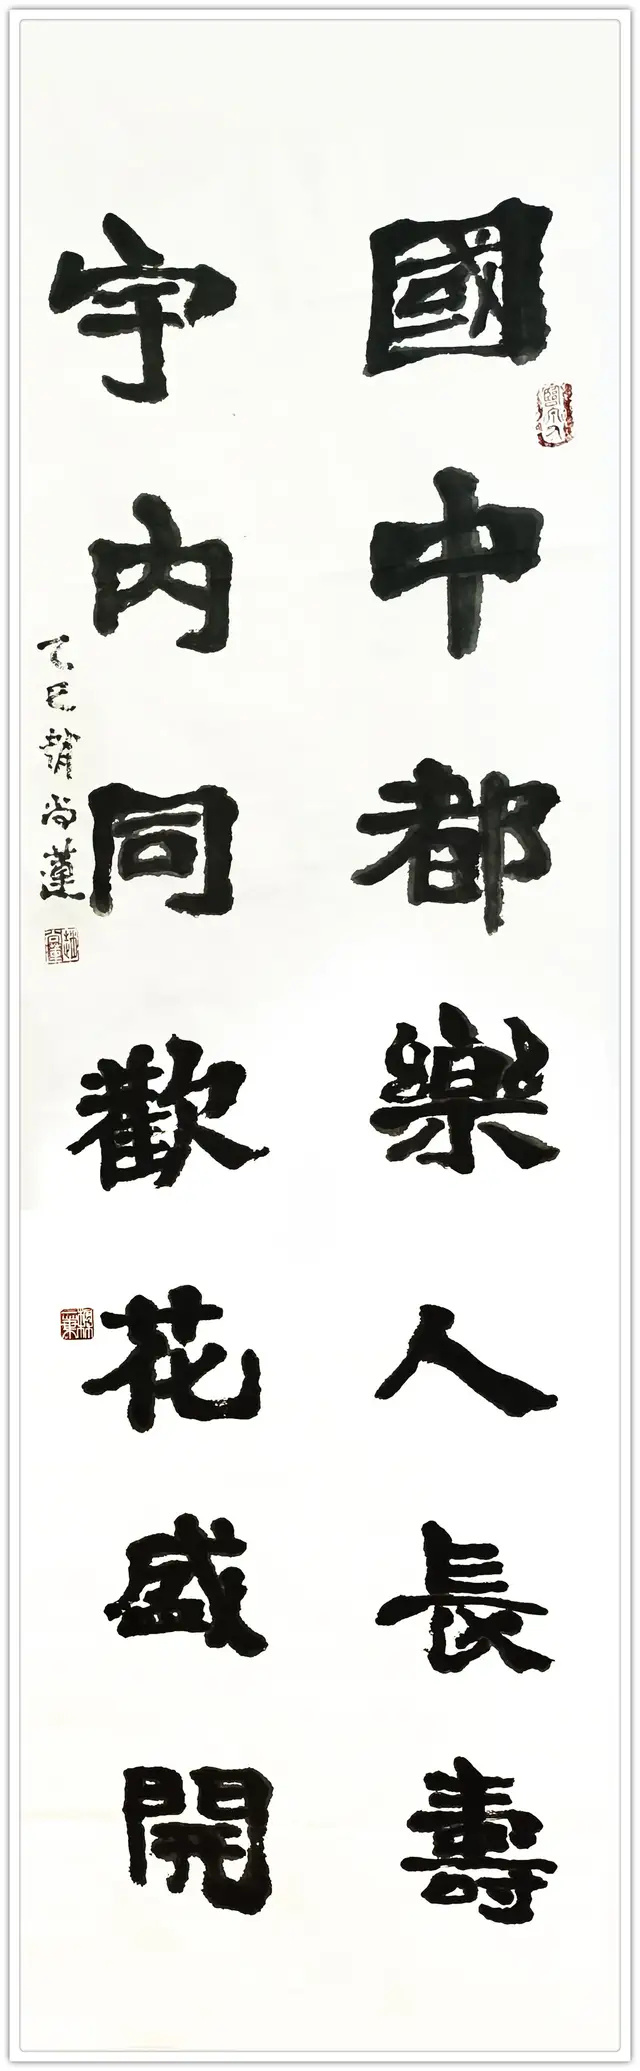 國中都樂人長壽
宇内同歡花盛開
乙巳趙尚蓮